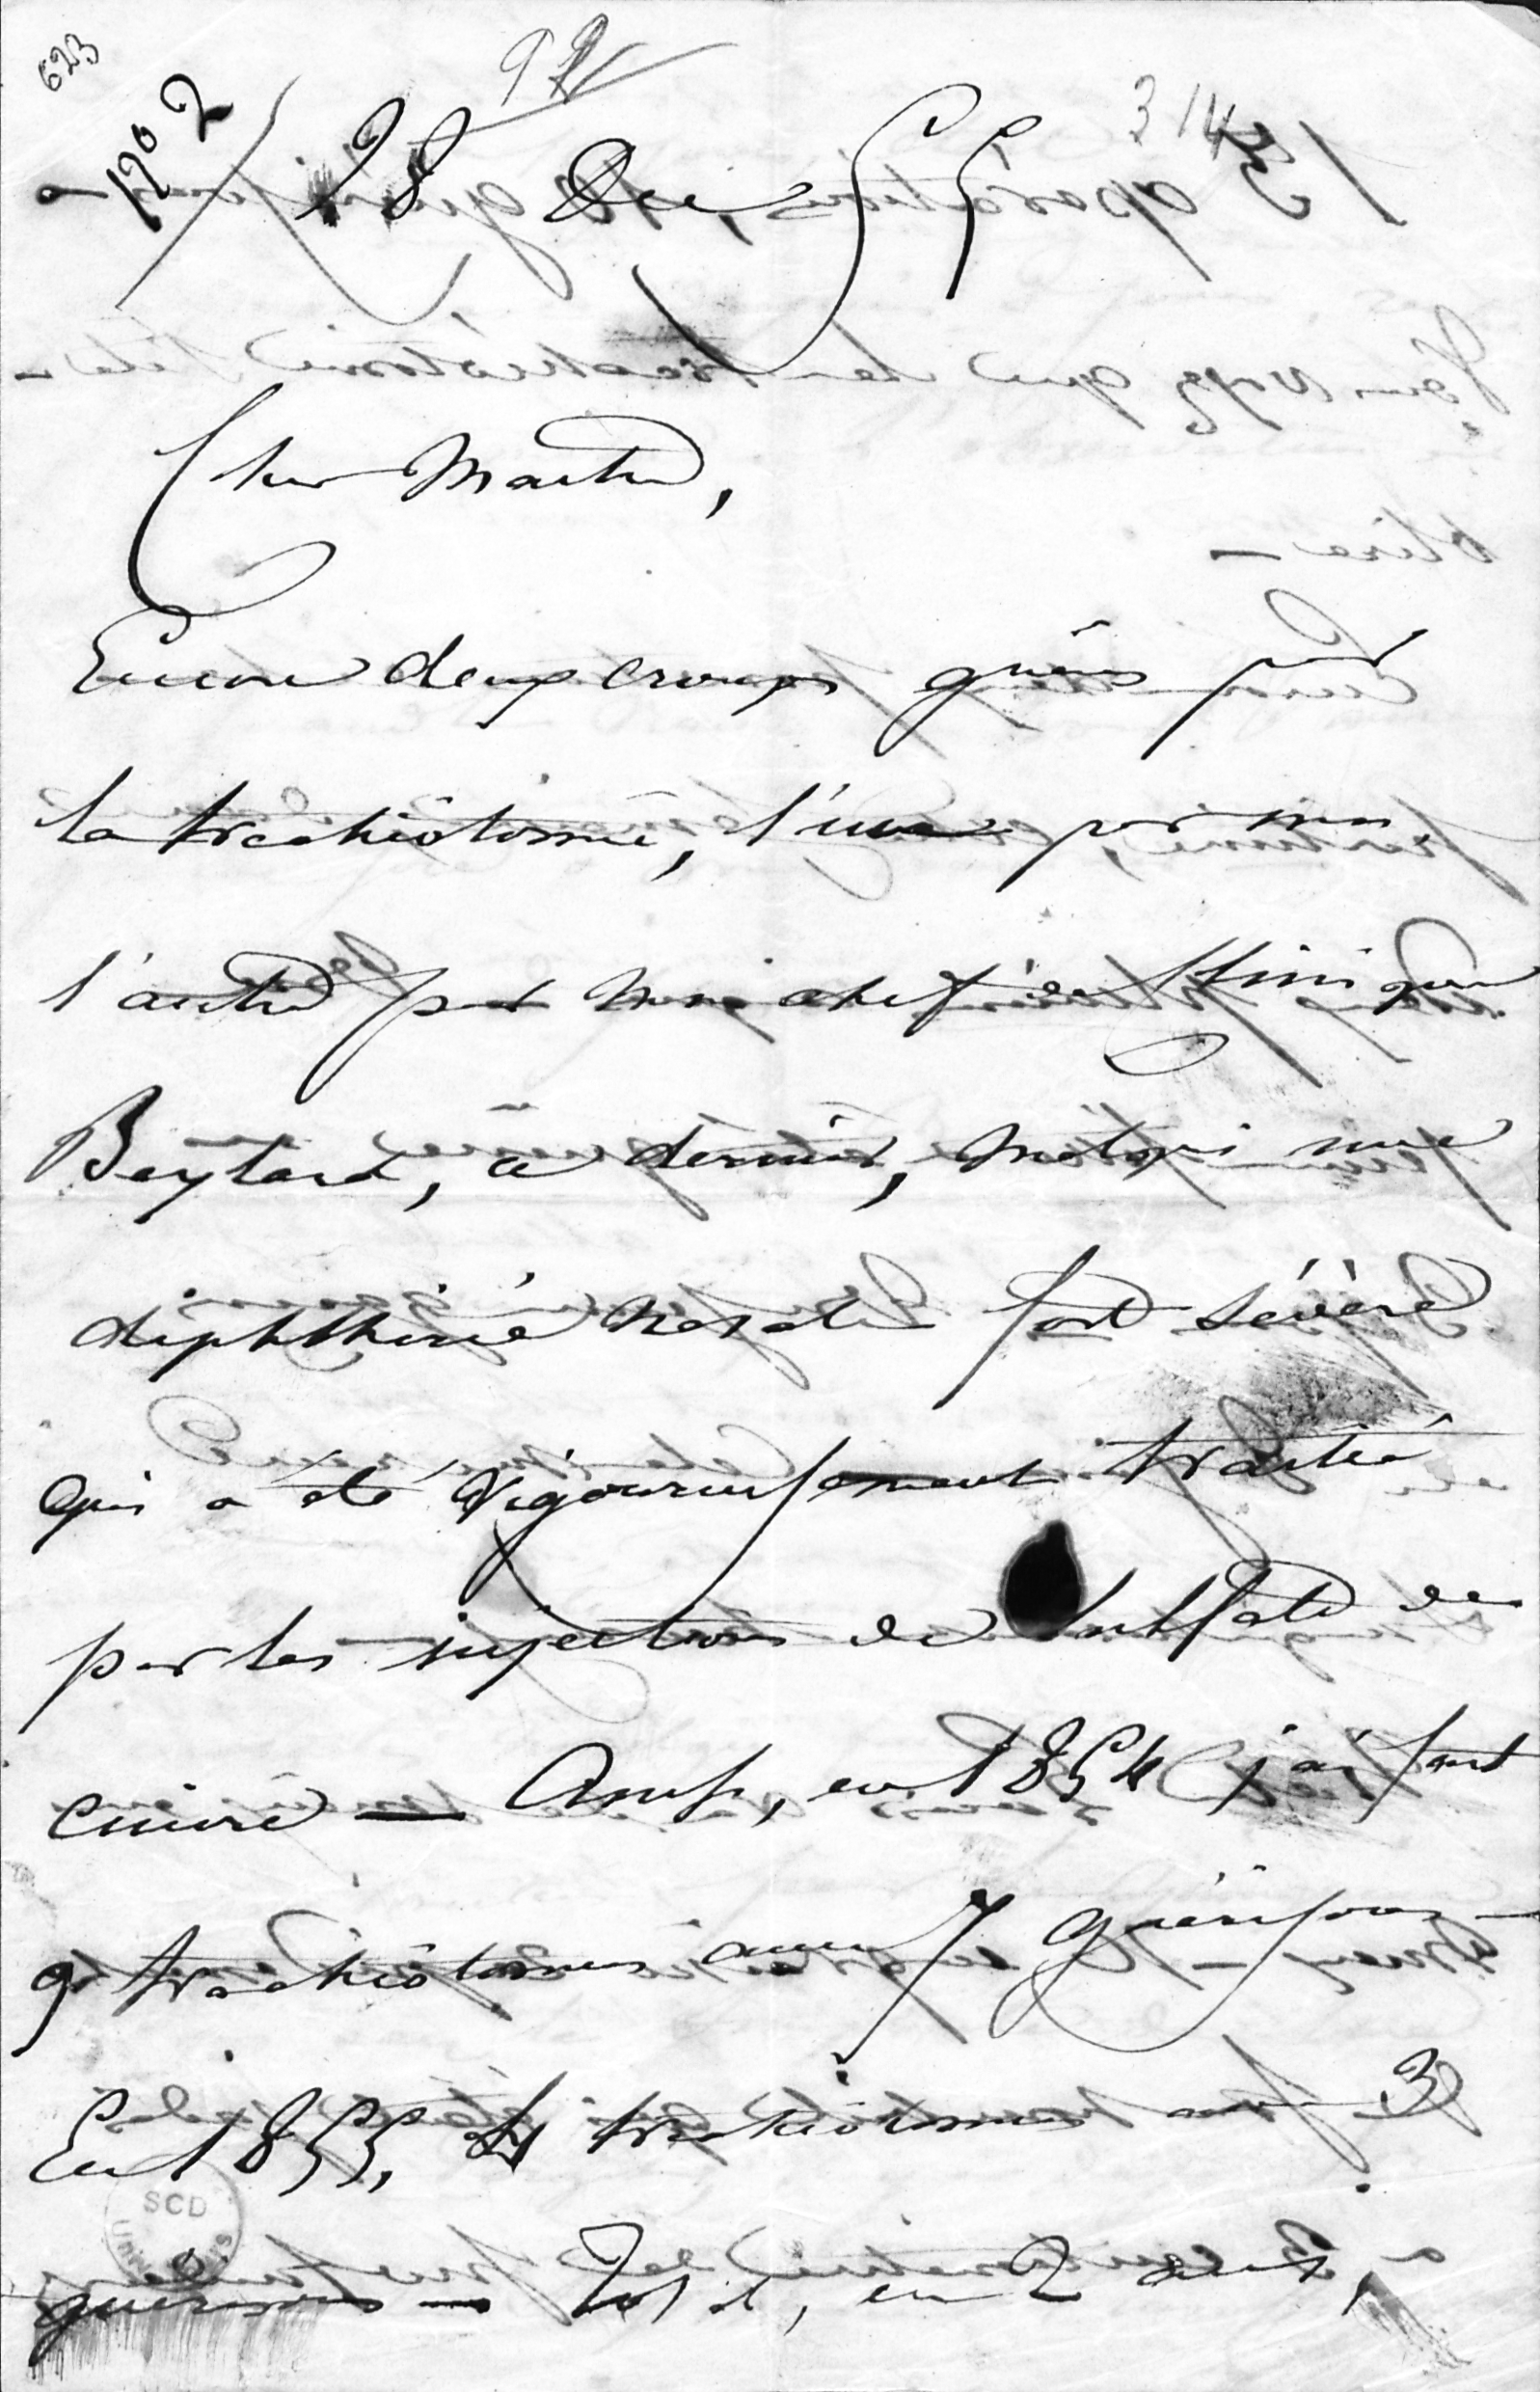 623
n° 2
314
28 Dec 55
Cher Maitre,
Encore deux croups guéris par
la trachéotomie, l'une par moi,
l'autre par mon chef de Clinique
Beylard, ce dernier, malgré une
diphthérie nasale fort sévère
qui a été vigoureusement traitée
par les injections de sulfate de
cuivre — Ainsi, en 1854 j'ai fait
9 trachéotomies avec 7 guérisons —
En 1855, 4 trachéotomies avec 3
guérisons — Total, en 2 ans,
SCD